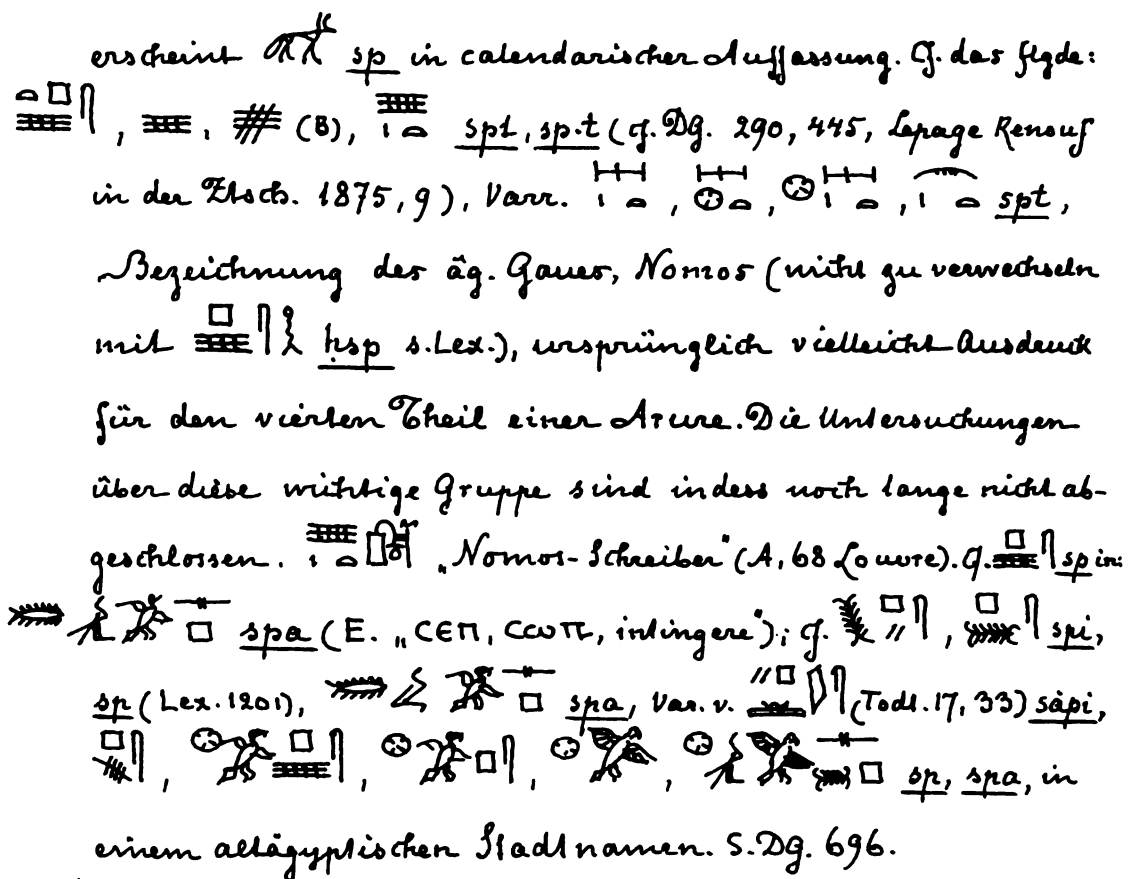 erscheint sp in calendarischer Auffassung. Cf. das flgde:
, , (B), spt, sp.t (cf. DG. 290, 445, Lepage Renouf
in der Ztsch. 1875, 9), Varr. , , , spt,
Bezeichnung des äg. Gaues, Nomos (nicht zu verwechseln
mit ḥsp s. Lex.), ursprünglich vielleicht Ausdruck
für den vierten Theil einer Arure. Die Untersuchungen
über diese wichtige Gruppe sind indess noch lange nicht ab-
geschlossen. „Nomos-Schreiber" (A, 68 Louvre). Cf. sp in:
spa (E. „ⲥⲉⲡ, ⲥⲱⲡ, intingere"); cf. , spi,
sp (Lex. 1201), spa, Var. v. (Todt. 17, 33) sápi,
, , , , sp, spa, in
einem altägyptischen Stadtnamen. S. DG. 696.